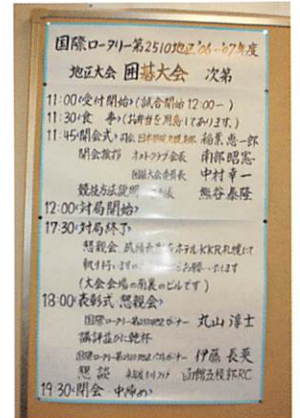 国際ロータリー第2510地区'06-'07年度
地区大会 囲碁大会 次第
11:00<受付開始>(試合開始12:00-)
11:30<食事>(お弁当を用意してあります。)
11:45<開会式> 司会、日本棋院 稲葉惠一郎
開会挨拶 ホストクラブ会長 南部昭憲
囲碁大会委員長 中村幸一
競技方法説明 熊谷泰隆
12:00<対局開始>
17:30<対局終了>
懇親会 ホテルKKR札幌にて
執り行いますので お願いいたします
(大会会場の南裏のビルです)
18:00<表彰式・懇親会>
国際ロータリー第2510地区ガバナー 丸山淳士
講評並びに乾杯
国際ロータリー第2510地区ガバナー 伊藤長英
懇談 函館五稜郭RC
19:30<閉会 中締め>